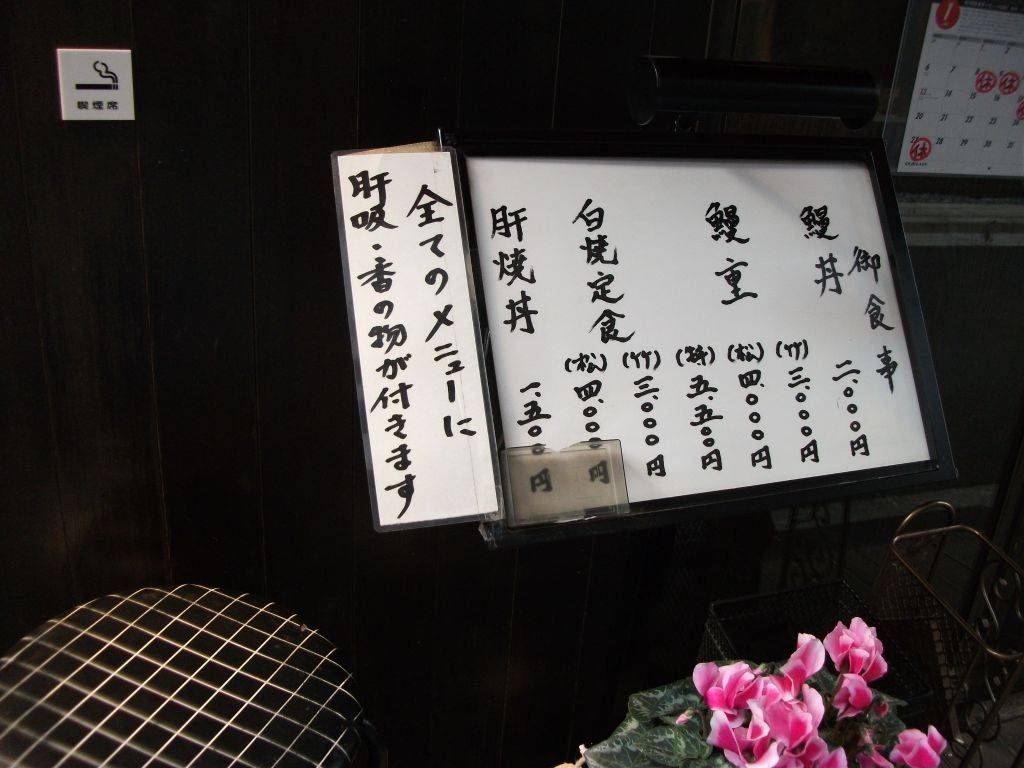 喫煙席
全てのメニューに
肝吸・香の物が付きます
御食事
鰻丼 二、〇〇〇円
鰻重 (竹) 三、〇〇〇円
(松) 四、〇〇〇円
(特) 五、五〇〇円
白焼定食 (竹) 三、〇〇〇円
(松) 四、〇〇〇円
肝焼丼 一、五〇〇円
1
6 7 休 休
13
20 21 22 23 24 25
27 休 28 29 30 31